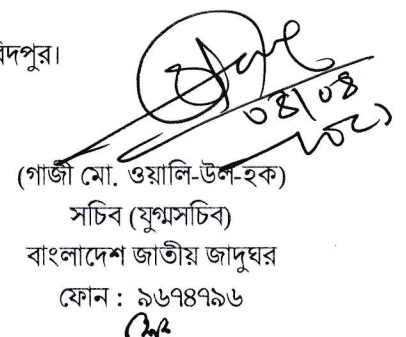 রিদপুর।
০৪|০৪
(গাজী মো. ওয়ালি-উল-হক)
সচিব (যুগ্মসচিব)
বাংলাদেশ জাতীয় জাদুঘর
ফোন : ৯৬৭৪৭৯৬